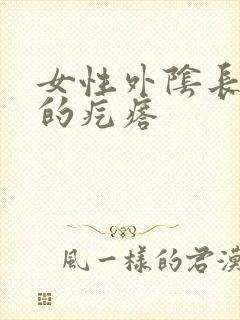 女性外陰長
的疙瘩
風一樣的君漢